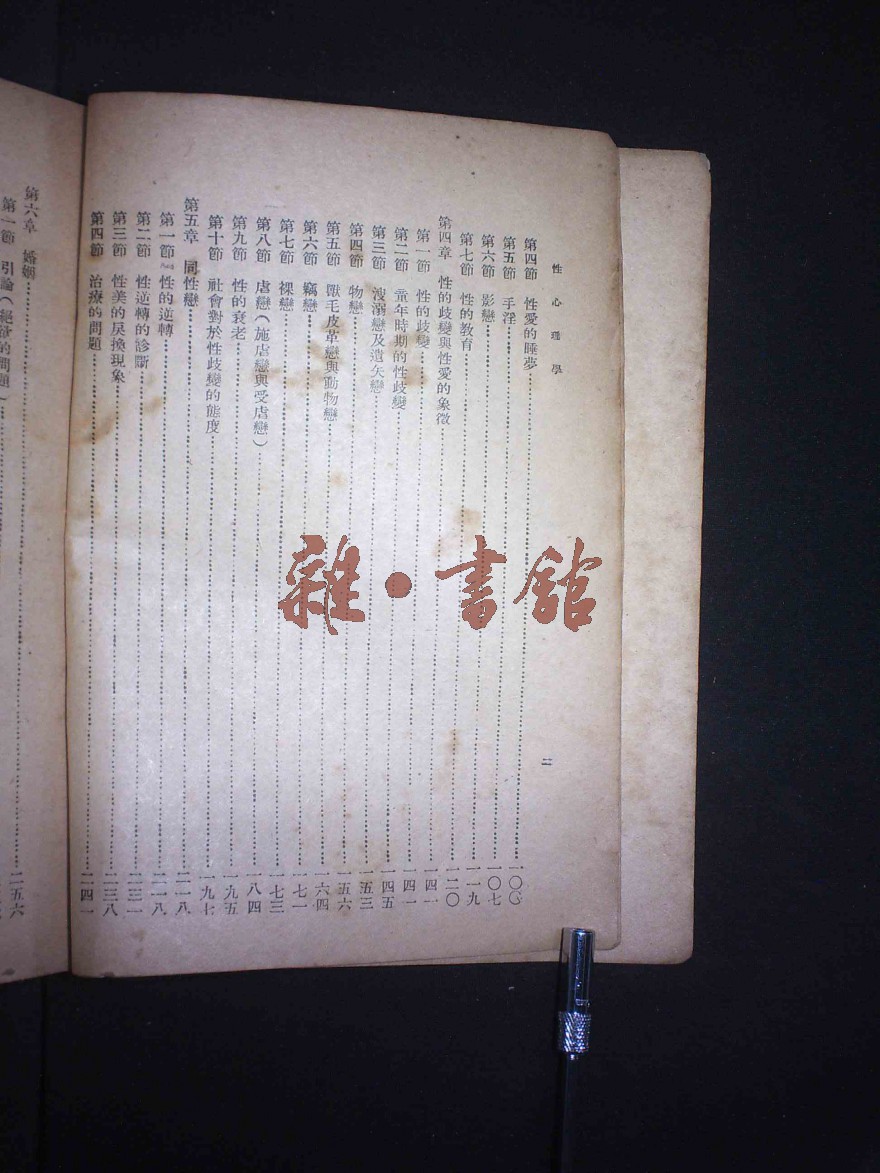 性心理學
第四節 性愛的睡夢……一〇〇
第五節 手淫……一〇七
第六節 影戀……一一九
第七節 性的教育……一二〇
第四章 性的歧變與性愛的象徵……一四一
第一節 性的歧變……一四一
第二節 童年時期的性歧變……一四五
第三節 溲溺戀及遺矢戀……一五三
第四節 物戀……一五六
第五節 獸毛皮革戀與動物戀……一六四
第六節 竊戀……一七一
第七節 裸戀……一七三
第八節 虐戀(施虐戀與受虐戀)……一八四
第九節 性的衰老……一九五
第十節 社會對於性歧變的態度……一九七
第五章 同性戀……二一八
第一節 性的逆轉……二一八
第二節 性逆轉的診斷……二三一
第三節 性美的戾換現象……二三八
第四節 治療的問題……二四一
二
第六章 婚姻……二五六
第一節 引論(絕欲的問題)……
雜·書館